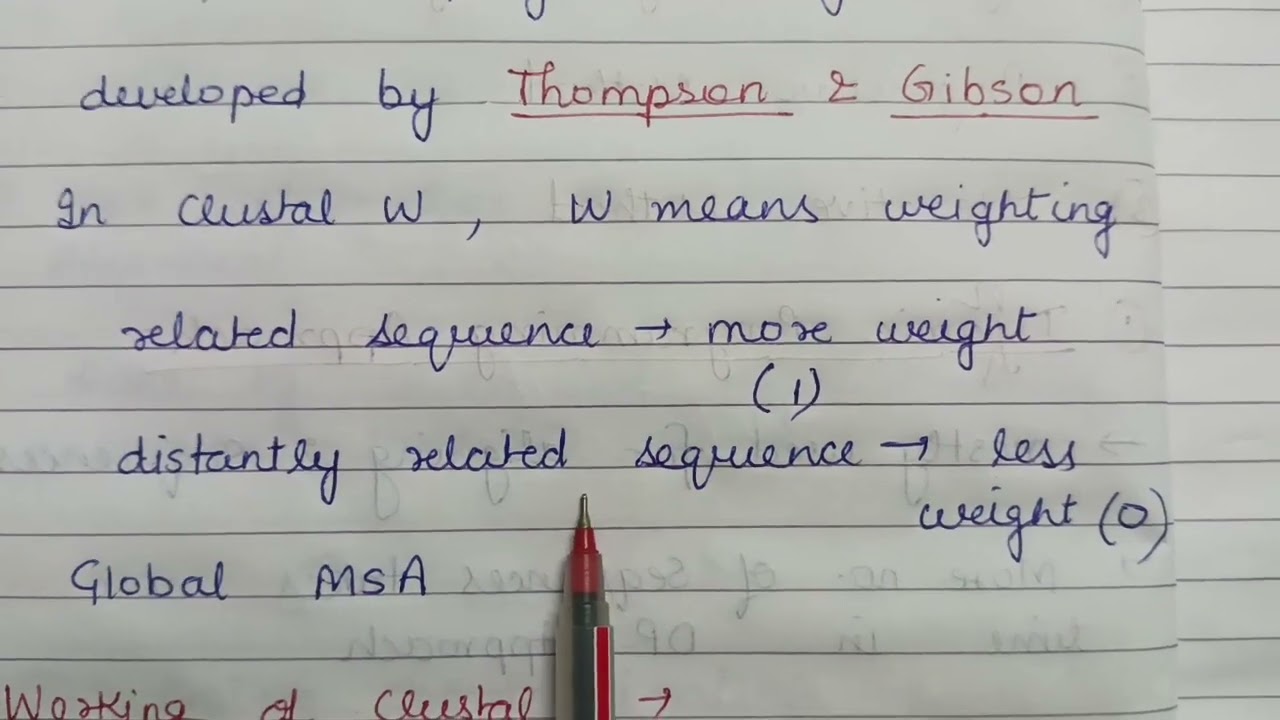 developed by Thompson & Gibson
In Clustal W, W means weighting
related sequence → more weight
(1)
distantly related sequence → less
weight (0)
Global MSA
Working of Clustal →